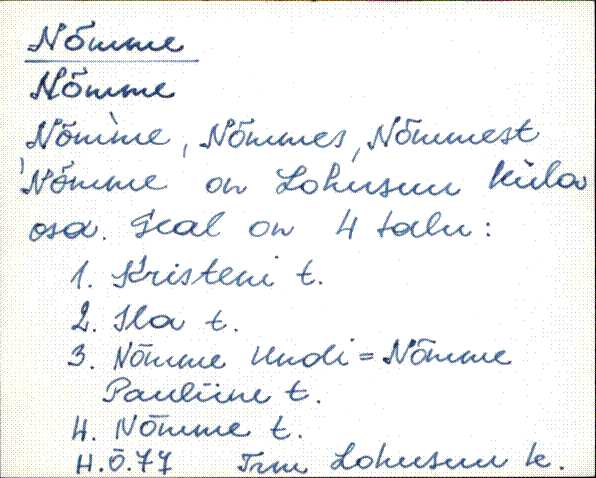 Nõmme
Nõmme
Nõm̀me, Nõmmes, Nõmmest
'Nõmme on Lohusuu küla
osa. Seal on 4 talu:
1. Kristeni t.
2. Ila t.
3. Nõmme Undi = Nõmme
Pauliine t.
4. Nõmme t.
H.Õ.77 Trm Lohusuu k.